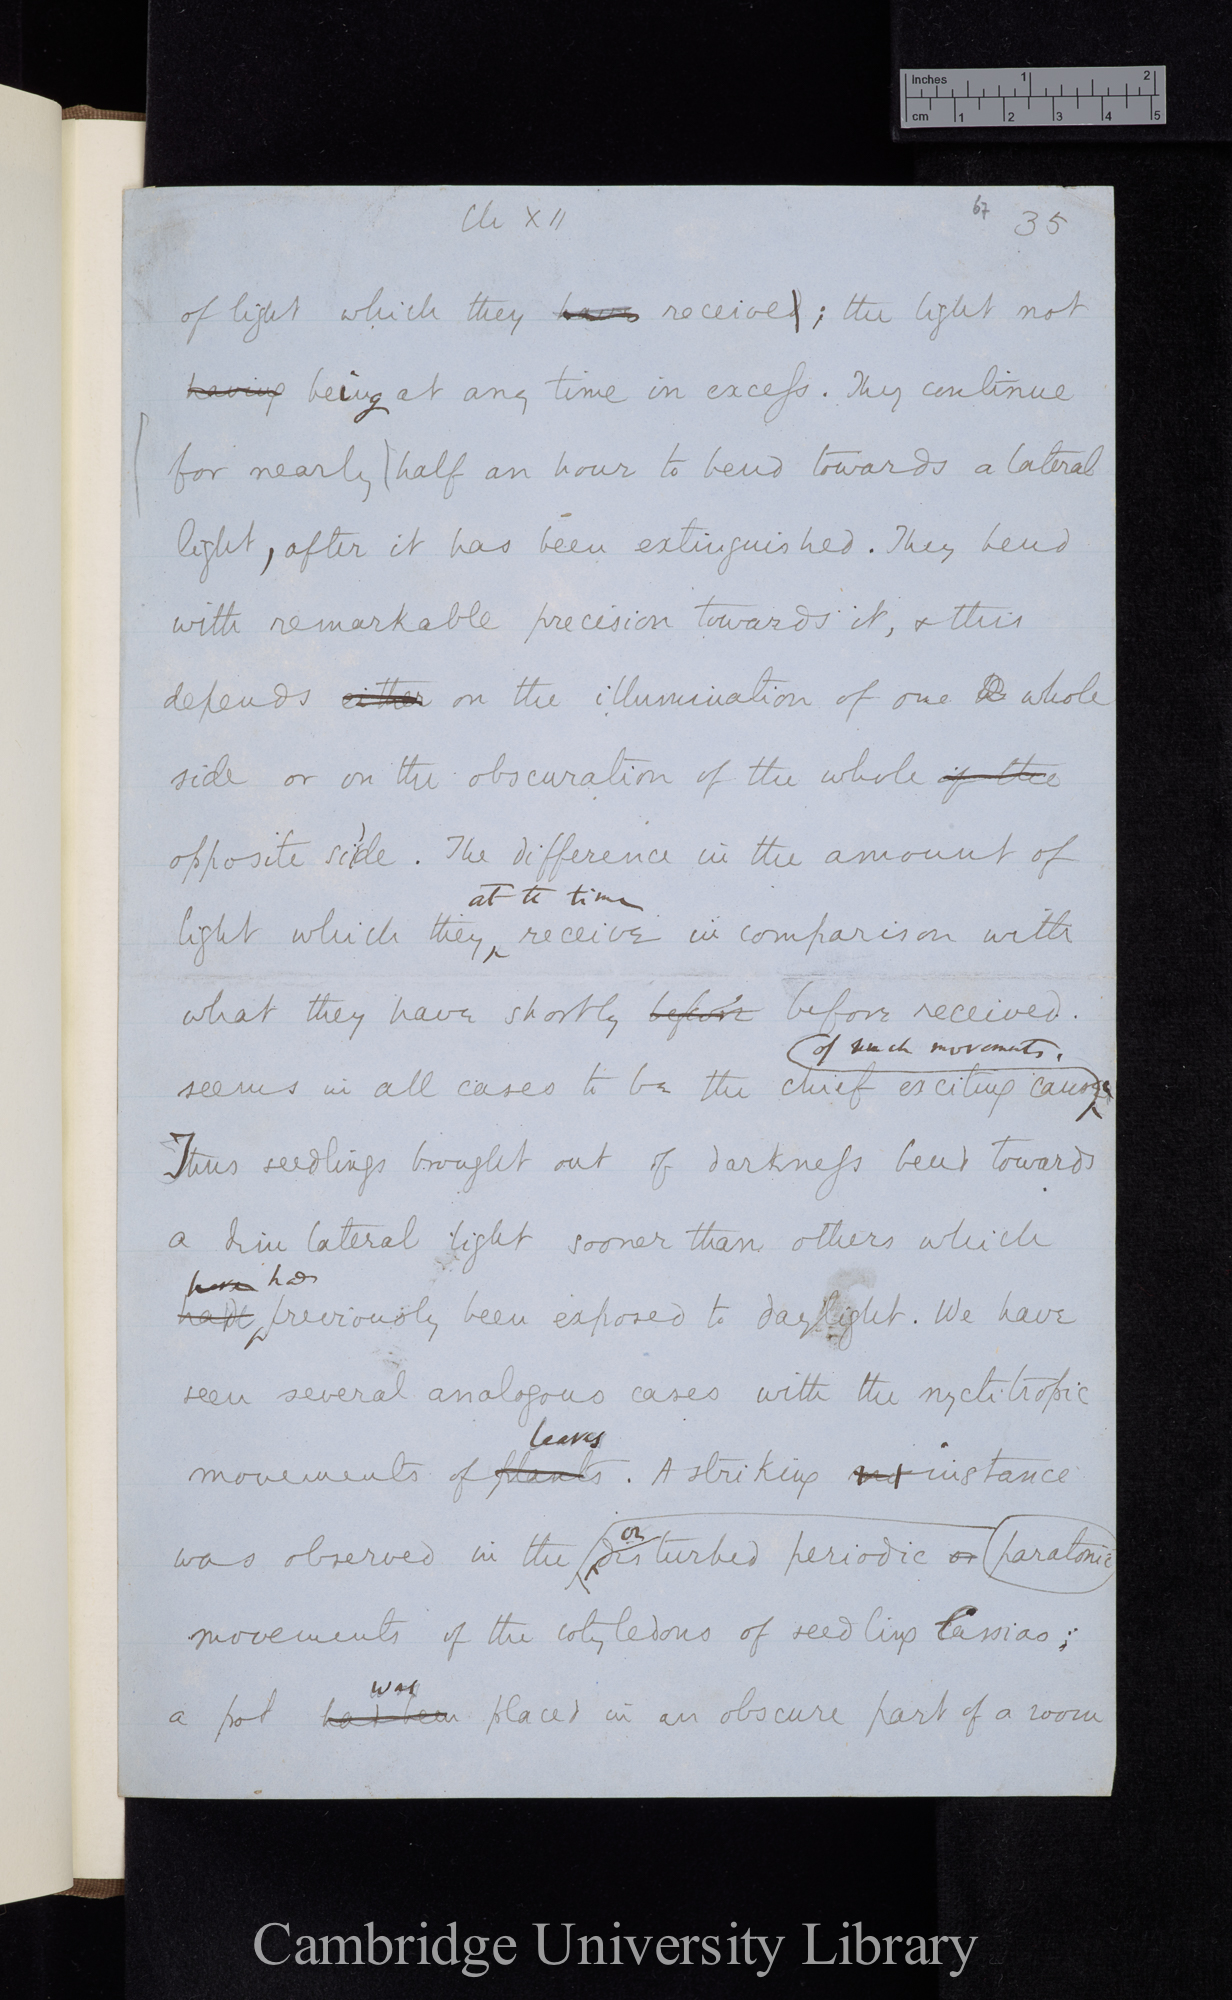 Inches 1 2
cm 1 2 3 4 5
Ch XII
67 35
of light which they have received; the light not
having being at any time in excess. They continue
for nearly half an hour to bend towards a lateral
light, after it has been extinguished. They bend
with remarkable precision towards it, & this
depends either on the illumination of one whole
side or on the obscuration of the whole of the
opposite side. The difference in the amount of
at the time
light which they receive in comparison with
what they have shortly before before received.
of such movements.
seems in all cases to be the chief exciting cause
Thus seedlings brought out of darkness bend towards
a dim lateral light sooner than others which
have had
have previously been exposed to daylight. We have
seen several analogous cases with the nyctitropic
leaves
movements of plants. A striking instance
or
was observed in the disturbed periodic or paratonic
movements of the cotyledons of seedling Cassias;
was
a pot had been placed in an obscure part of a room
Cambridge University Library